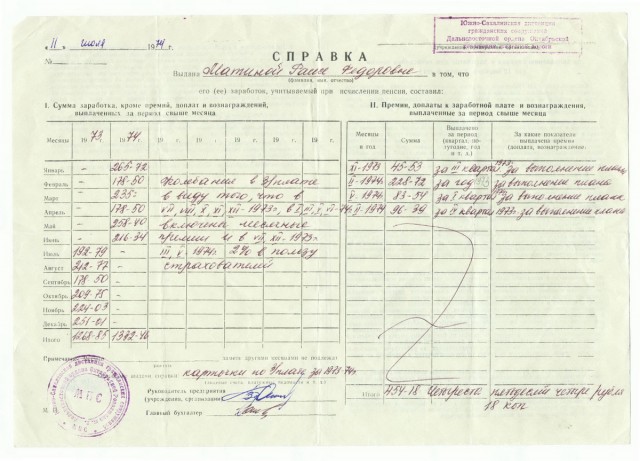 Южно-Сахалинская дистанция
гражданских сооружений
Дальневосточной ордена Октябрьской
„ 11 “ июля 1974 г.
№
СПРАВКА
Выдана Матиной Раисе Федоровне в том, что
(фамилия, имя, отчество)
его (ее) заработок, учитываемый при исчислении пенсии, составил:
I. Сумма заработка, кроме премий, доплат и вознаграждений,
выплаченных за период свыше месяца
II. Премии, доплаты к заработной плате и вознаграждения,
выплаченные за период свыше месяца
Месяцы 1973 1974 19 г. 19 г. 19 г. 19 г. 19 г.
Месяцы и год Сумма Выплачено за период (квартал, полугодие, год и т. п.) За какие показатели выплачено премии (доплата, вознаграждение)
Январь - 265-72
Февраль - 178-50 Колебания в з/плате
Март - 235=
в виду того, что в
Апрель - 178-50
VII, VIII, X, XI, XII-1973г. в I, III, V, VI-74г.
Май - 258-40 включены месячные
Июнь - 216-34 премии и в VII, XII-1973г.
Июль 192-79 - III, V, 1974г. 2% в пользу
Август 212-77 - страхователей
Сентябрь 178-50 -
Октябрь 209-75 -
Ноябрь 224-03 -
Декабрь 251-01 -
Итого 1268-85 1332-46
XI-1973 45-53 за III квартал 1973г. за выполнение плана
II-1974г. 228-72 за год 1973 за выполнение плана
V-1974 83-54 за I квартал за выполнение плана
II-1974г 96-34 за IV квартал 1973г. за выполнение плана
Примечание
зачете другими месяцами не подлежат
выдачи справки карточки по з/плате за 1973 74гг
Руководитель предприятия
(учреждения, организации)
Главный бухгалтер
М. П.
МПС
Итого 454-18 Четыреста пятьдесят четыре рубля
18 коп.